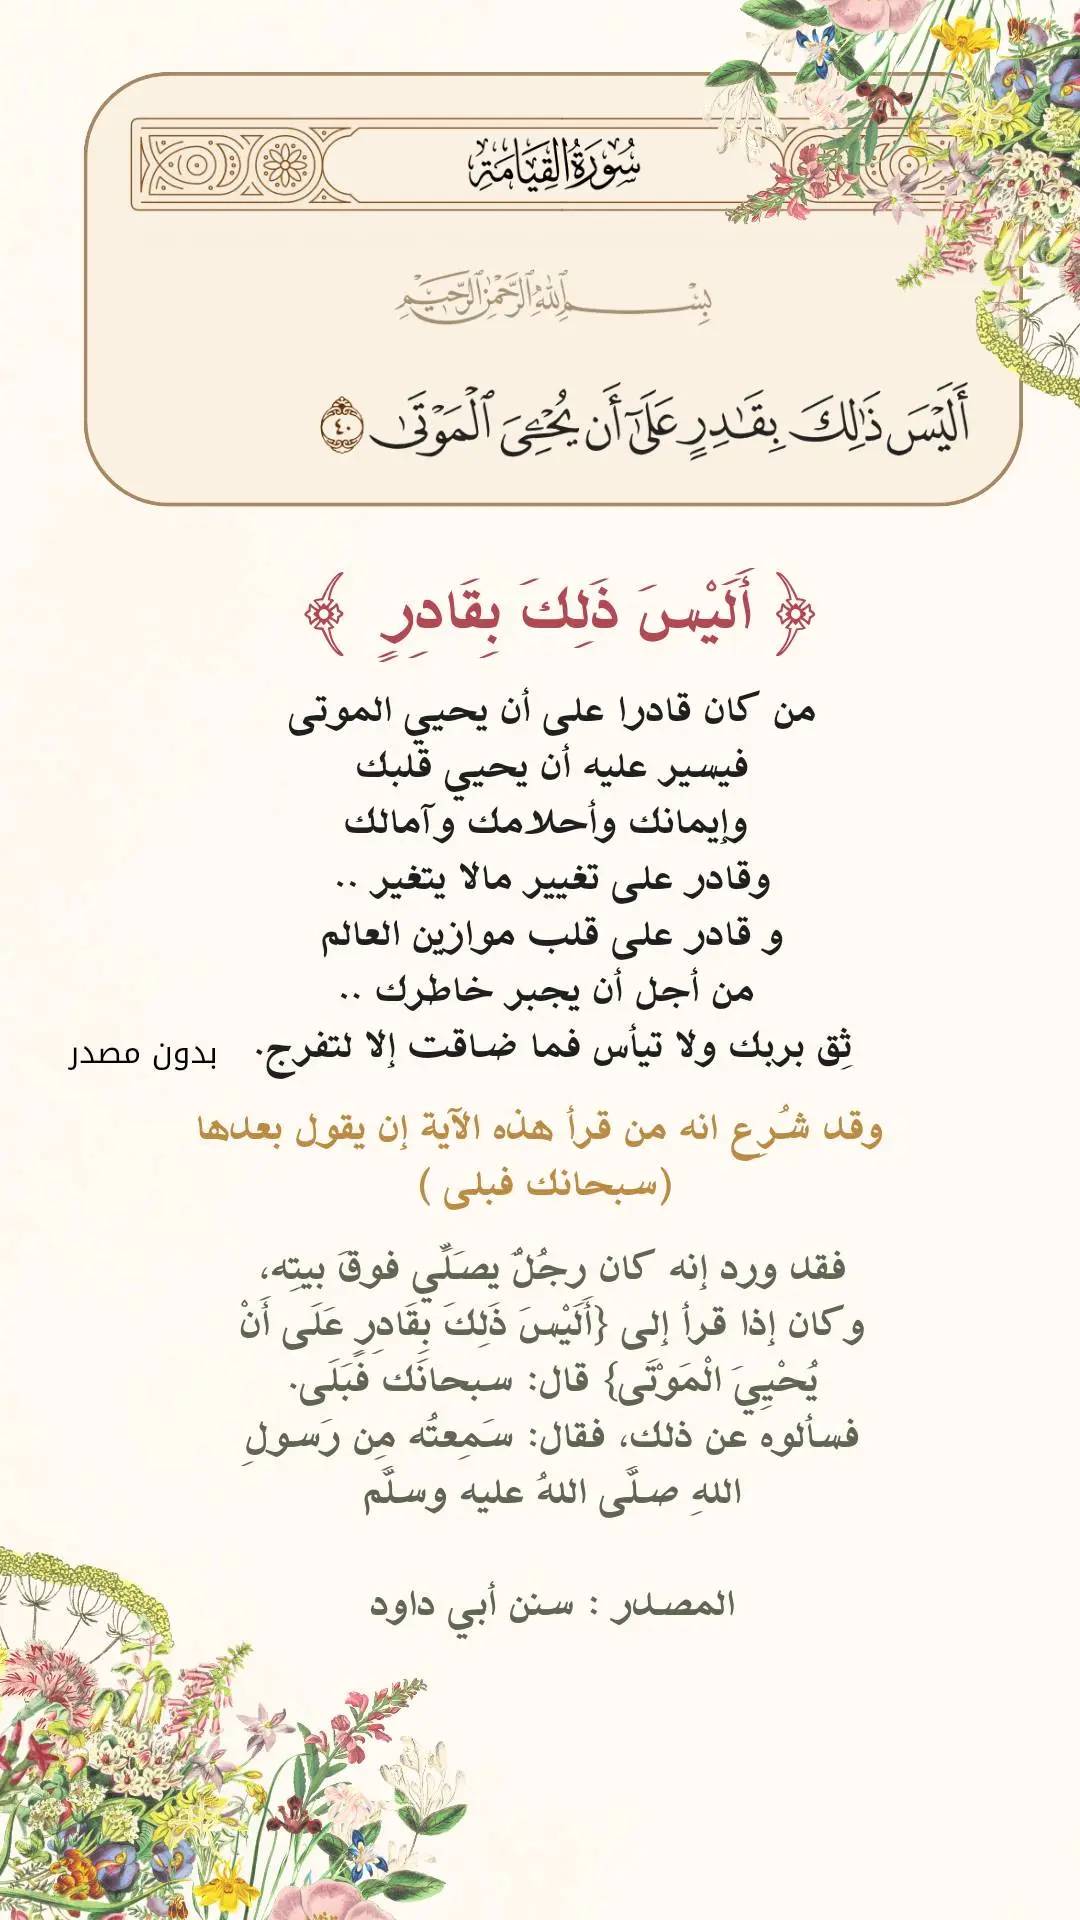 سُورَةُ القِيَامَةِ
بِسْمِ اللَّهِ الرَّحْمَٰنِ الرَّحِيمِ
أَلَيْسَ ذَٰلِكَ بِقَٰدِرٍ عَلَىٰٓ أَن يُحْـِۧىَ ٱلْمَوْتَىٰ ٤٠
﴿ أَلَيْسَ ذَلِكَ بِقَادِرٍ ﴾
من كان قادرا على أن يحيي الموتى
فيسير عليه أن يحيي قلبك
وإيمانك وأحلامك وآمالك
وقادر على تغيير مالا يتغير ..
و قادر على قلب موازين العالم
من أجل أن يجبر خاطرك ..
ثِق بربك ولا تيأس فما ضاقت إلا لتفرج.
بدون مصدر
وقد شُرِع انه من قرأ هذه الآية إن يقول بعدها
(سبحانك فبلى )
فقد ورد إنه كان رجُلٌ يصَلِّي فوقَ بيتِه،
وكان إذا قرأ إلى {أَلَيْسَ ذَلِكَ بِقَادِرٍ عَلَى أَنْ
يُحْيِيَ الْمَوْتَى} قال: سبحانَك فَبَلَى.
فسألوه عن ذلك، فقال: سَمِعتُه مِن رَسولِ
اللهِ صلَّى اللهُ عليه وسلَّم
المصدر : سنن أبي داود